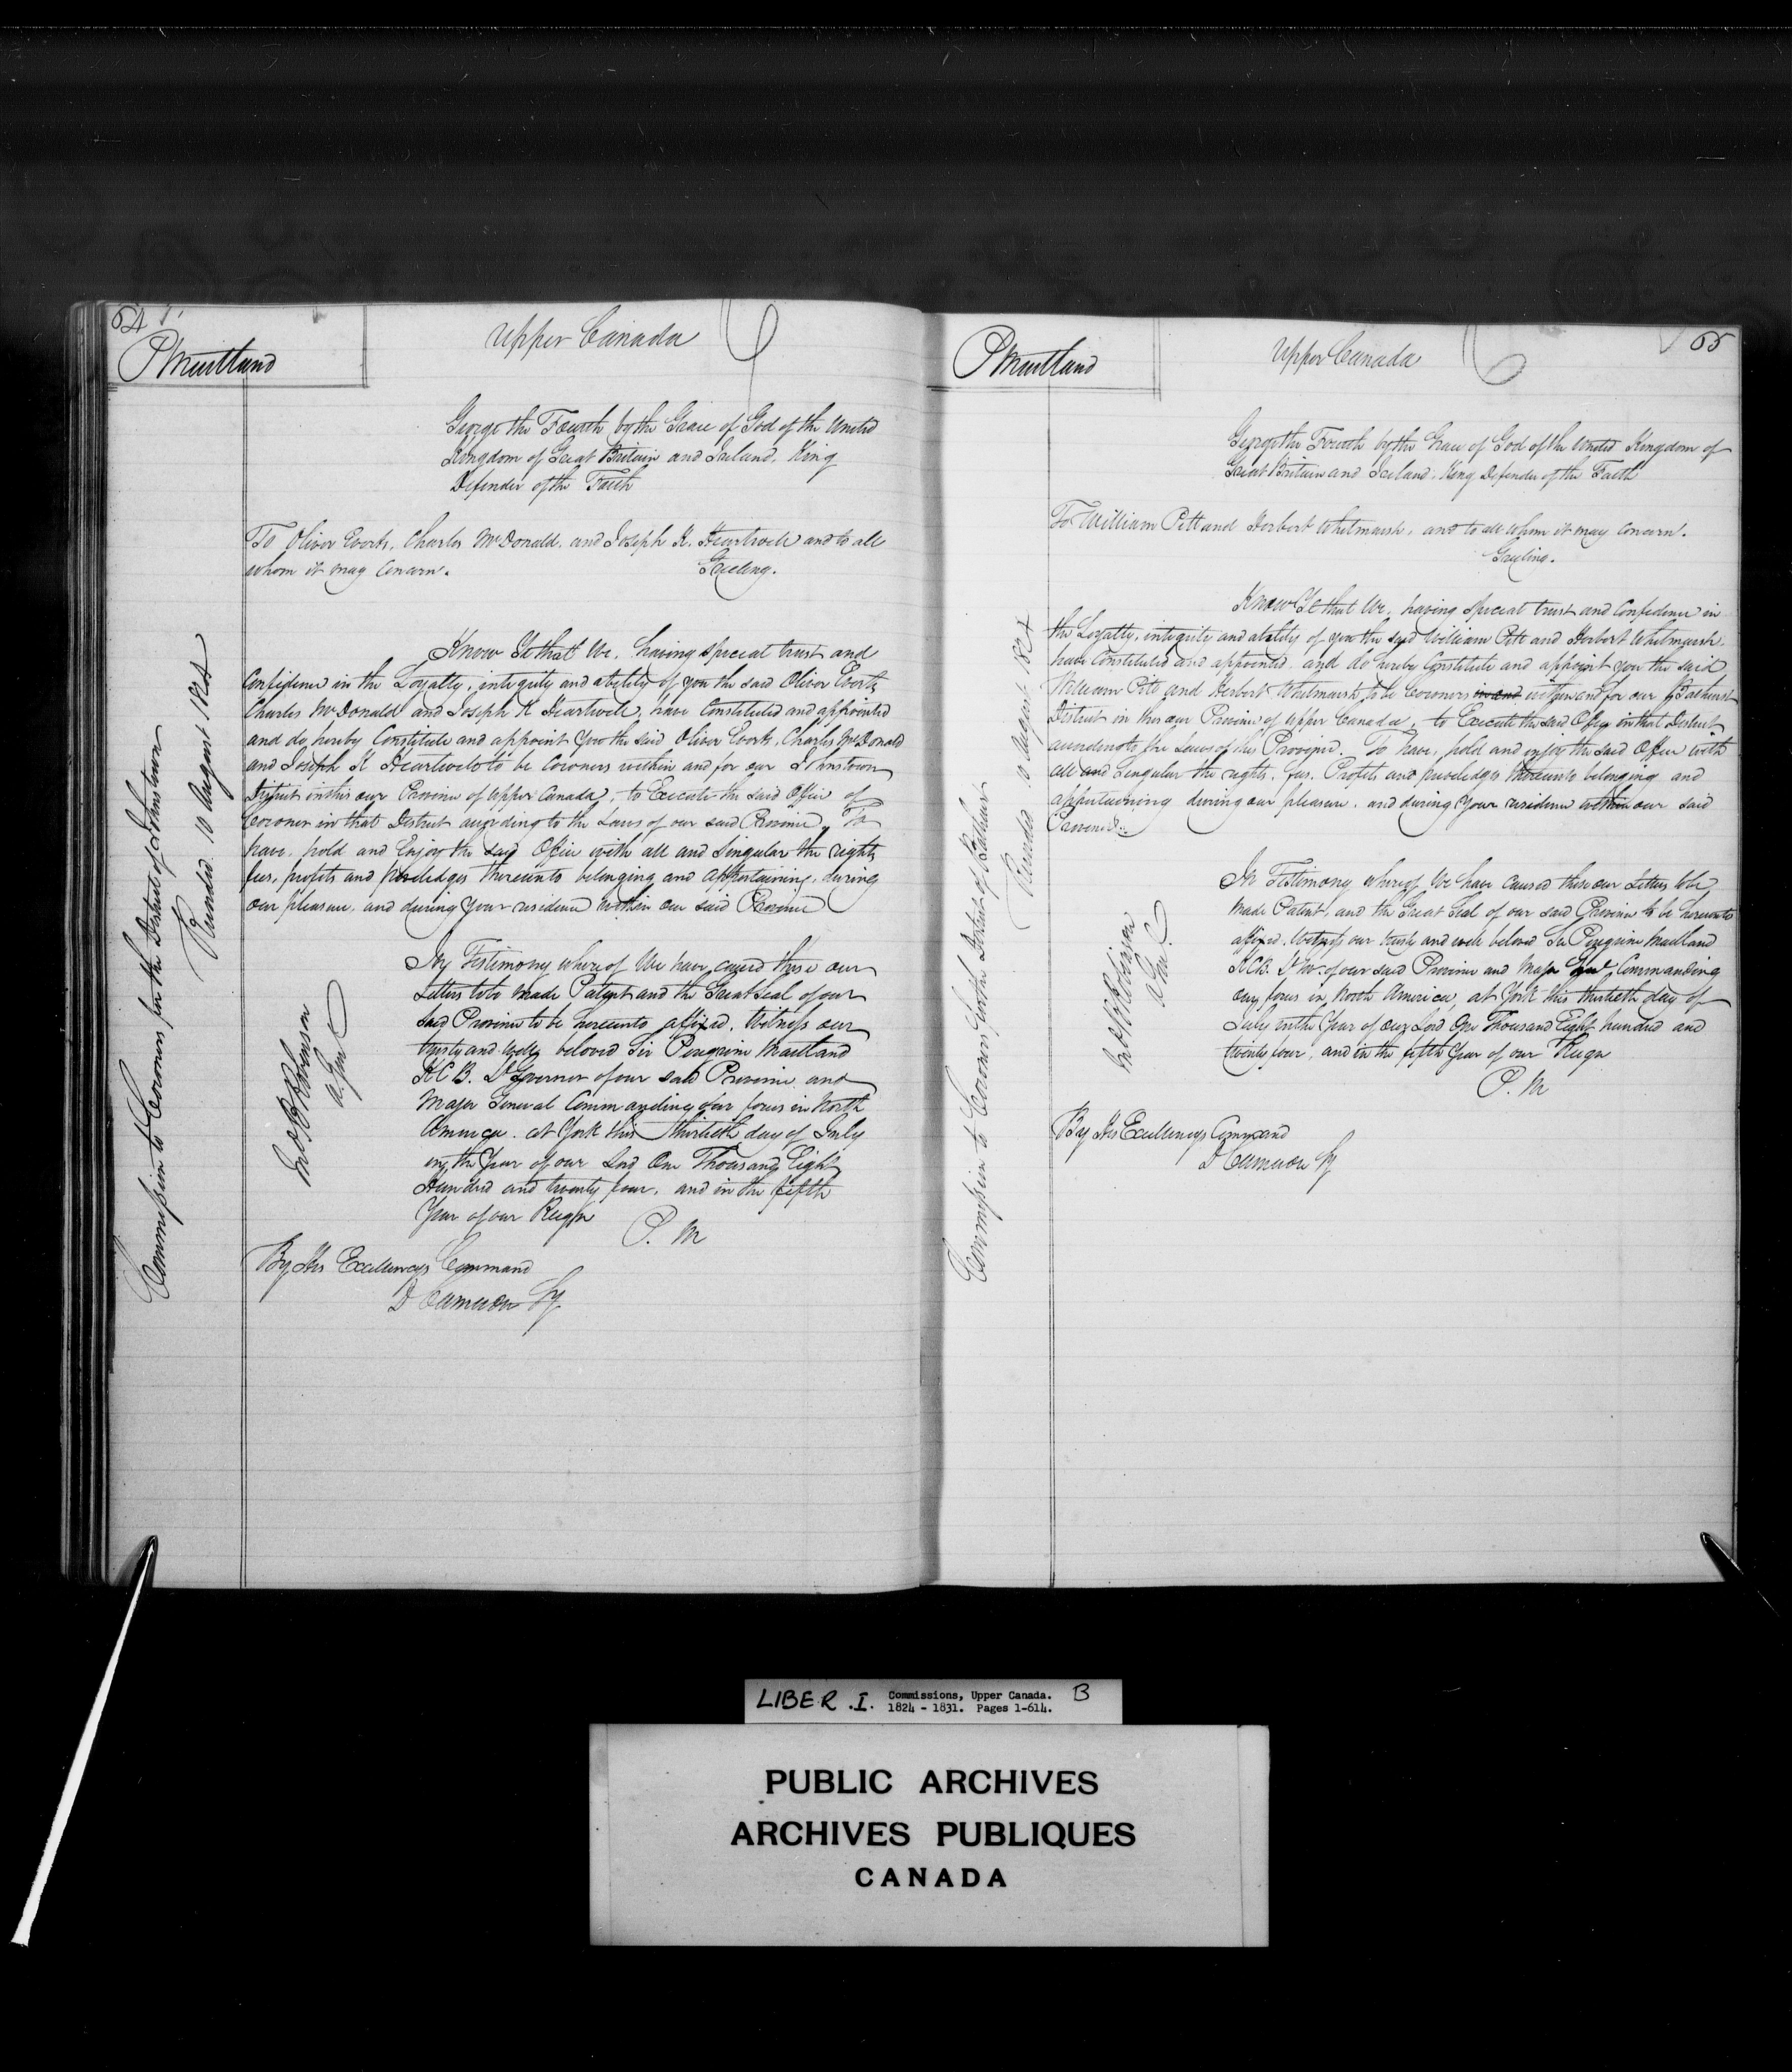 64
P Maitland
Upper Canada
George the Fourth by the Grace of God of the United
Kingdom of Great Britain and Ireland, King
Defender of the Faith
To Oliver Everts, Charles McDonald, and Joseph K. Heartwell and to all
whom it may Concern.
Greeting.
Know Ye that We, having special trust and
Confidence in the Loyalty, integrity and ability of you the said Oliver Everts
Charles McDonald and Joseph K Heartwell, have Constituted and appointed
and do hereby Constitute and appoint you the said Oliver Everts, Charles McDonald
and Joseph K Heartwell to be Coroners within and for our Johnstown
District in this our Province of Upper Canada, to Execute the said Office of
Coroner in that District according to the Laws of our said Province, To
have, hold and Enjoy the said Office with all and Singular the rights
fees, profits and priviledges thereunto belonging and appertaining, during
our pleasure, and during your residence within our said Province
In Testimony whereof We have caused these our
Letters to be made Patent and the Great Seal of our
said Province to be hereunto affixed. Witness our
trusty and well beloved Sir Peregrine Maitland
KCB. Lt Governor of our said Province and
Major General Commanding our forces in North
America. at York this thirtieth day of July
in the Year of our Lord One Thousand Eight
Hundred and twenty four, and in the fifth
Year of our Reign
P. M
By His Excellencys Command
D Cameron Sy
Commission to Coroners for the District of Johnstown
Recorded 10 August 1824
Jno B Robinson
A. Gen
65
P Maitland
Upper Canada
George the Fourth by the Grace of God of the United Kingdom of
Great Britain and Ireland, King Defender of the Faith
To William Pitt and Herbert Whitmarsh, and to all whom it may Concern.
Greeting.
Know Ye that We, having special trust and Confidence in
the Loyalty, integrity and ability of you the said William Pitt and Herbert Whitmarsh
have Constituted and appointed, and do hereby Constitute and appoint you the said
William Pitt and Herbert Whitmarsh to be Coroners in and within and for our Bathurst
District in this our Province of Upper Canada, to Execute the said Office in that District
according to the Laws of this Province. To have, hold and enjoy the said Office with
all and Singular the rights, fees, Profits and priveledges thereunto belonging and
appertaining during our pleasure, and during your residence within our said
Province.
In Testimony whereof We have caused these our Letters to be
made Patent, and the Great Seal of our said Province to be hereunto
affixed. Witness our trusty and well beloved Sir Peregrine Maitland
KCB. Lt Gov. of our said Province and Major Genl Commanding
our forces in North America, at York this thirtieth day of
July in the Year of our Lord One Thousand Eight hundred and
twenty four, and in the fifth Year of our Reign
P. M
By His Excellencys Command
D Cameron Sy
Commission to Coroners for the District of Bathurst
Recorded 10 August 1824
Jno B Robinson
A Gen.
LIBER .I. Commissions, Upper Canada. B
1824 - 1831. Pages 1-614.
PUBLIC ARCHIVES
ARCHIVES PUBLIQUES
CANADA